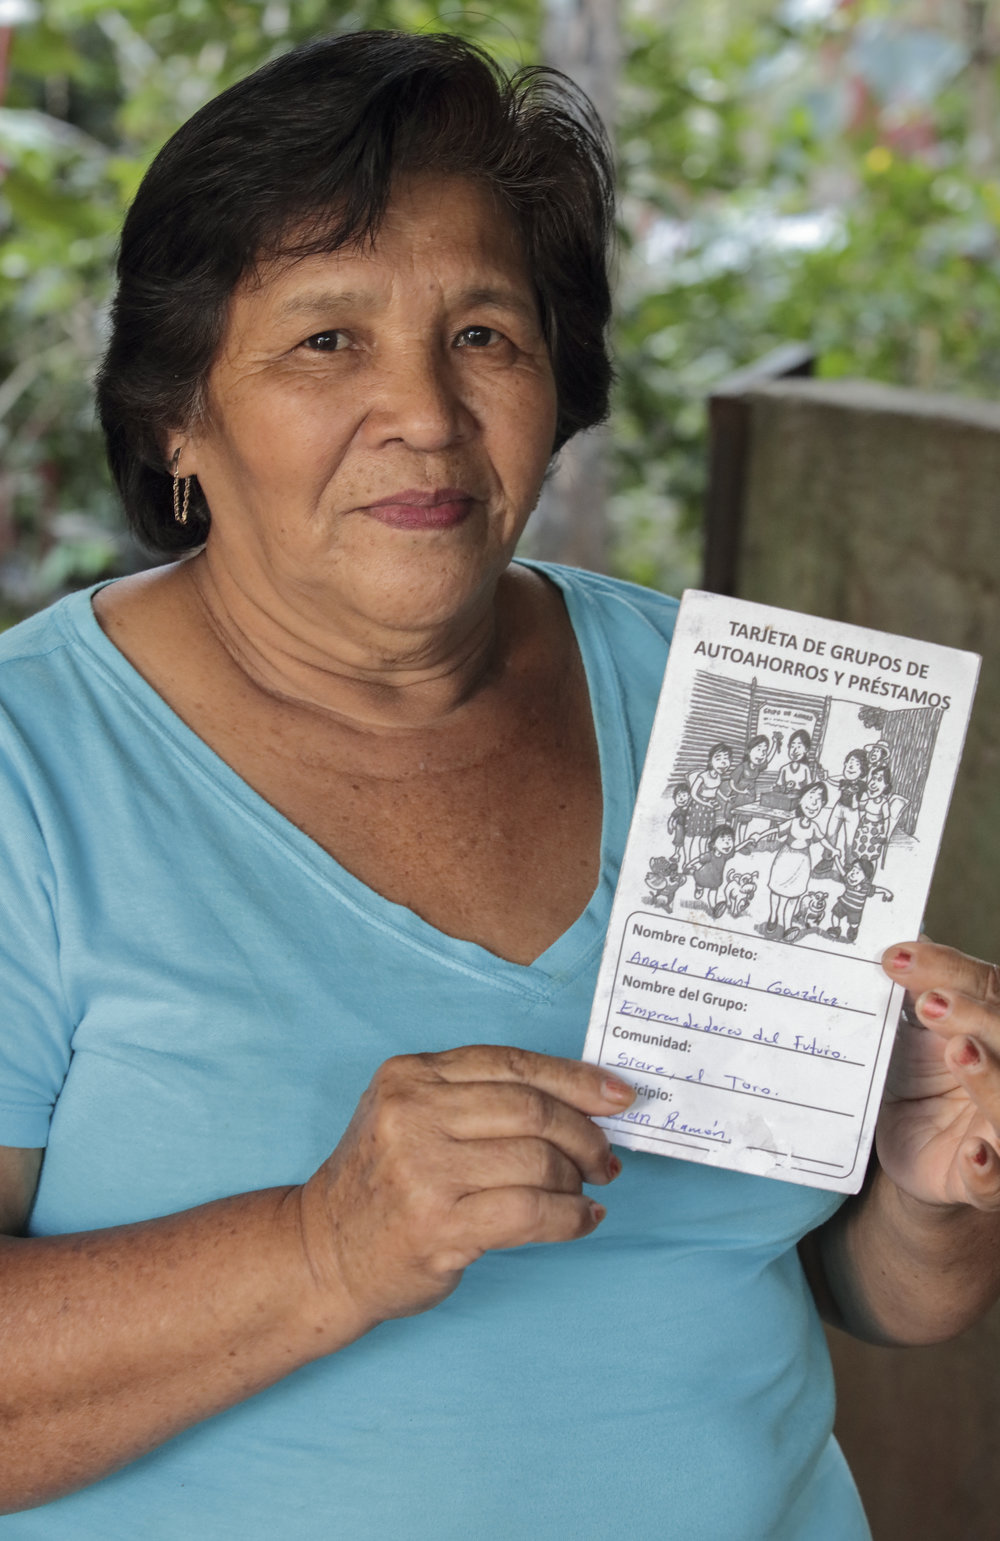 TARJETA DE GRUPOS DE
AUTOAHORROS Y PRÉSTAMOS
GRUPO DE AHORRO
Nombre Completo:
Angela Kuant González.
Nombre del Grupo:
Emprendedores del Futuro.
Comunidad:
Siare, el Toro.
icipio:
San Ramón